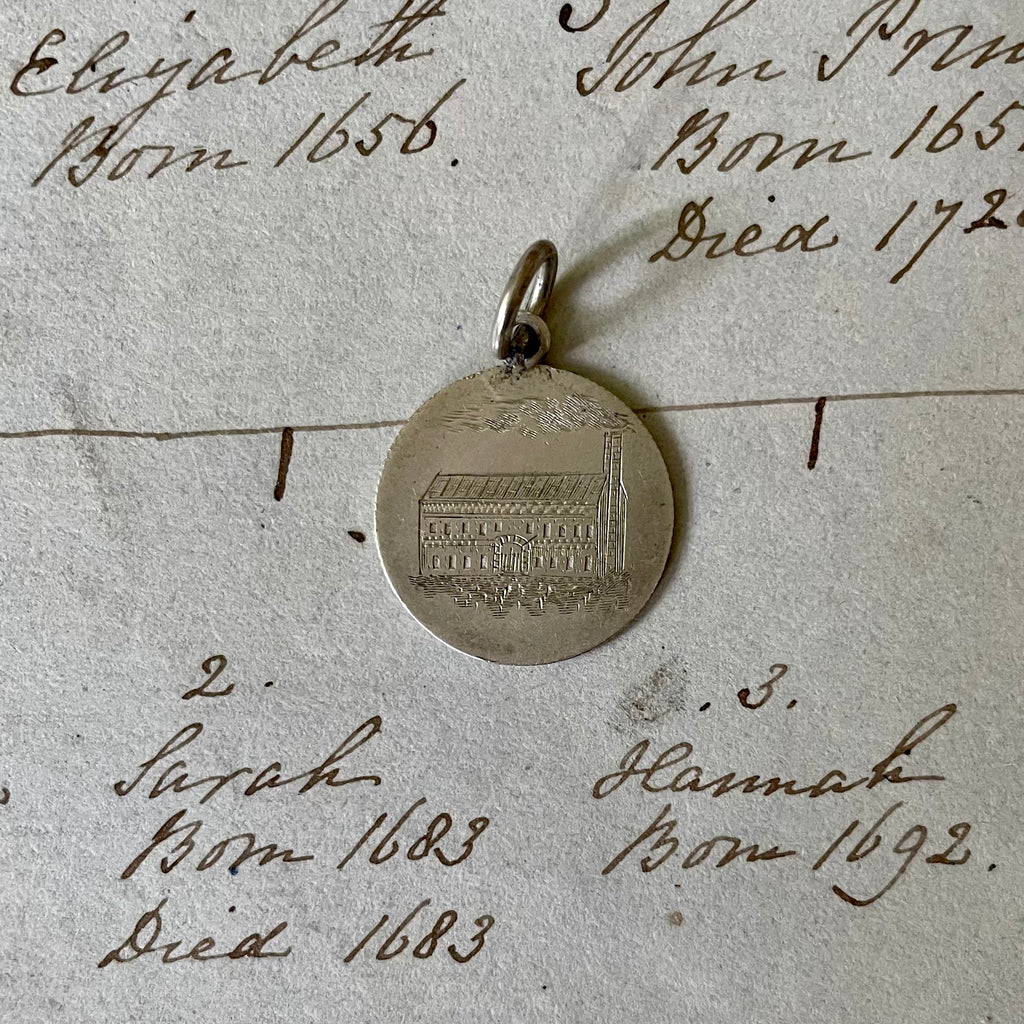 Elizabeth
Born 1656.
John
Born 165
Died 172
2.
Sarah
Born 1683
Died 1683
3.
Hannah
Born 1692.